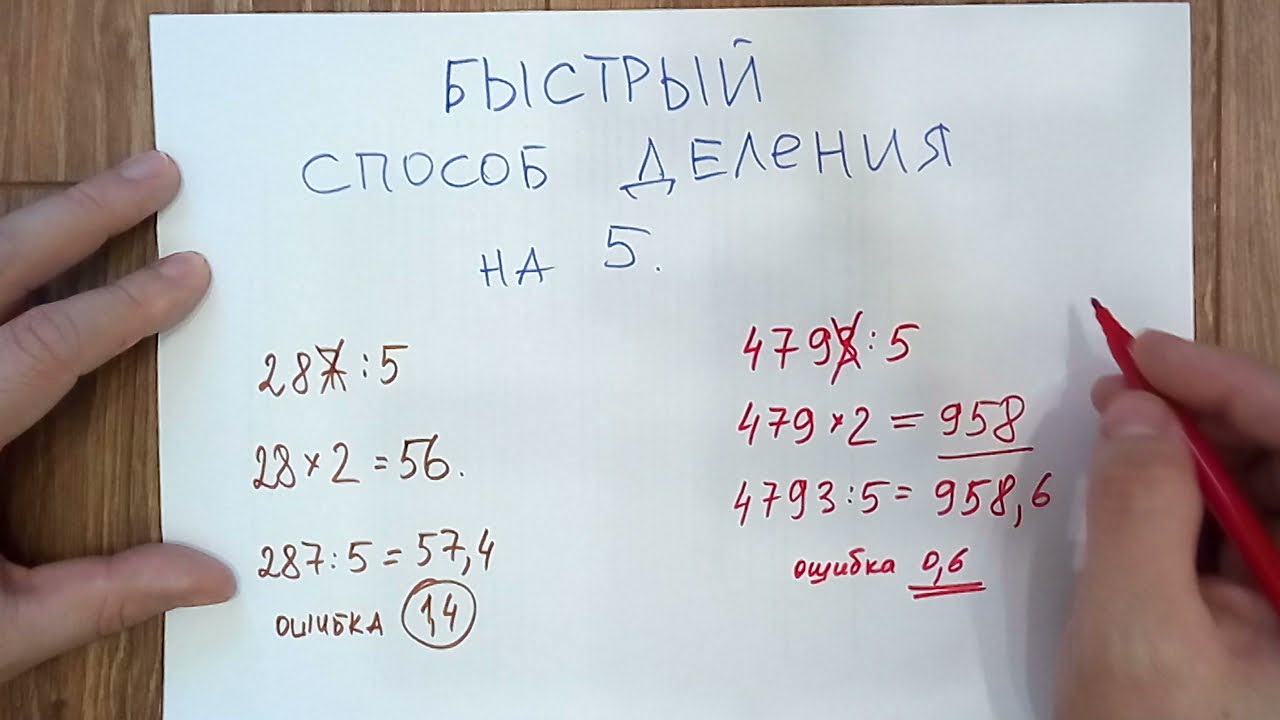 БЫСТРЫЙ
СПОСОБ ДЕЛЕНИЯ
НА 5.
287 : 5
28 × 2 = 56.
287 : 5 = 57,4
ОШИБКА 1,4
4793 : 5
479 × 2 = 958
4793 : 5 = 958,6
ошибка 0,6